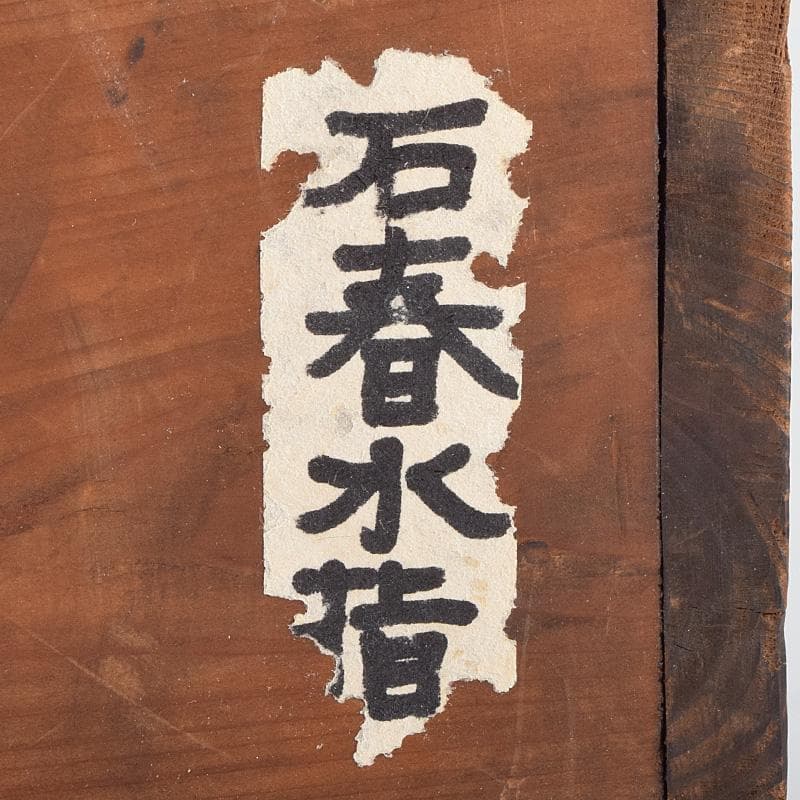 石春水指